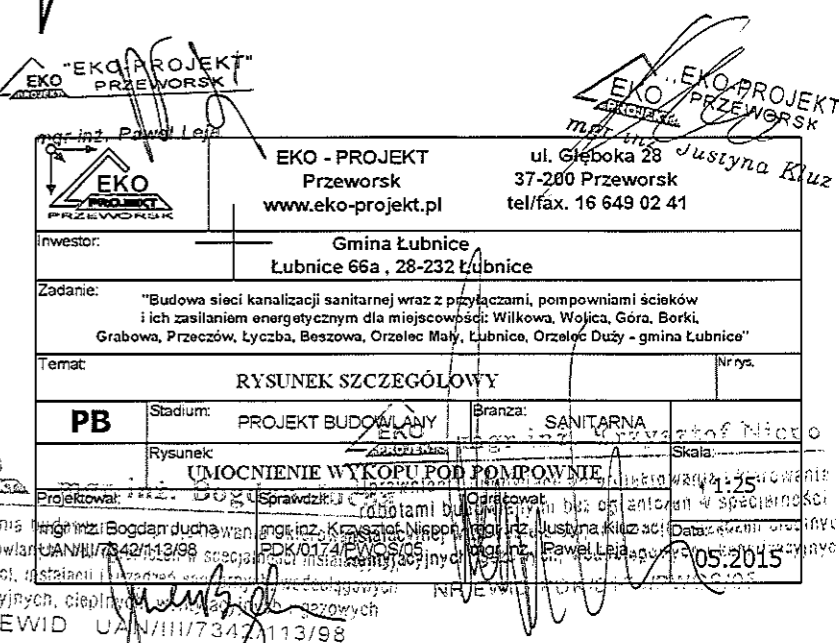 "EKO-PROJEKT"
PRZEWORSK
EKO
PROJEKT
mgr inż. Paweł Leja
EKO-PROJEKT
PRZEWORSK
EKO
PROJEKT
mgr inż. Justyna Kluz
EKO
PROJEKT
PRZEWORSK
EKO - PROJEKT
Przeworsk
www.eko-projekt.pl
ul. Głęboka 28
37-200 Przeworsk
tel/fax. 16 649 02 41
Inwestor:
Gmina Łubnice
Łubnice 66a , 28-232 Łubnice
Zadanie:
"Budowa sieci kanalizacji sanitarnej wraz z przyłączami, pompowniami ścieków
i ich zasilaniem energetycznym dla miejscowości: Wilkowa, Wolica, Góra, Borki,
Grabowa, Przeczów, Łyczba, Beszowa, Orzelec Mały, Łubnice, Orzelec Duży - gmina Łubnice"
Temat:
Nr rys.
RYSUNEK SZCZEGÓŁOWY
PB
Stadium:
PROJEKT BUDOWLANY
Branża:
SANITARNA
EKO
Rysunek:
UMOCNIENIE WYKOPU POD POMPOWNIE
Skala:
1:25
Projektował:
mgr inż. Bogdan Jucha
UAN/III/7342/113/98
Sprawdził:
mgr inż. Krzysztof Nicpoń
PDK/0174/PWOS/05
Opracował:
mgr inż. Justyna Kluz
mgr inż. Paweł Leja
Data:
05.2015
robotami bez ograniczeń w specjalności
gazowych
UAN/III/7342/113/98